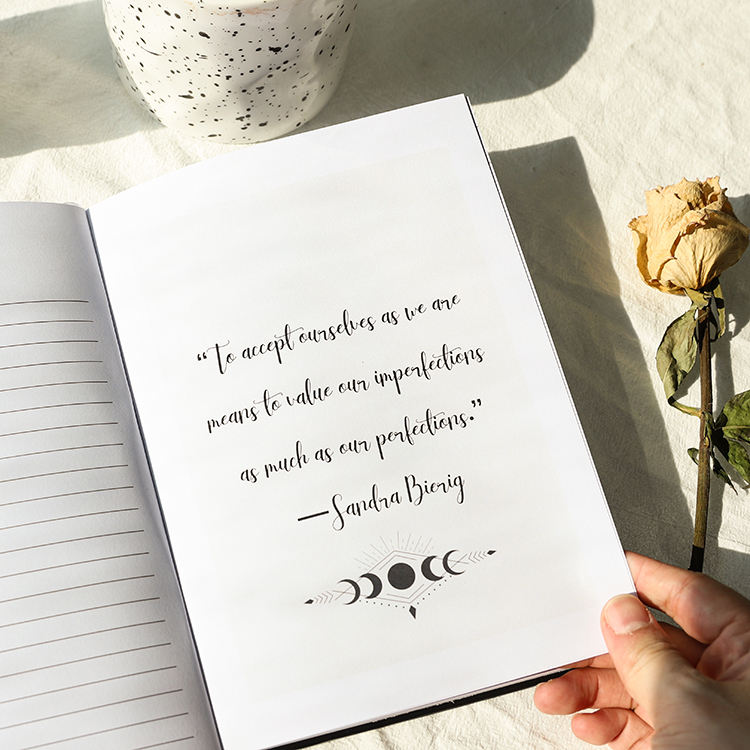 “To accept ourselves as we are
means to value our imperfections
as much as our perfections.”
—Sandra Bierig